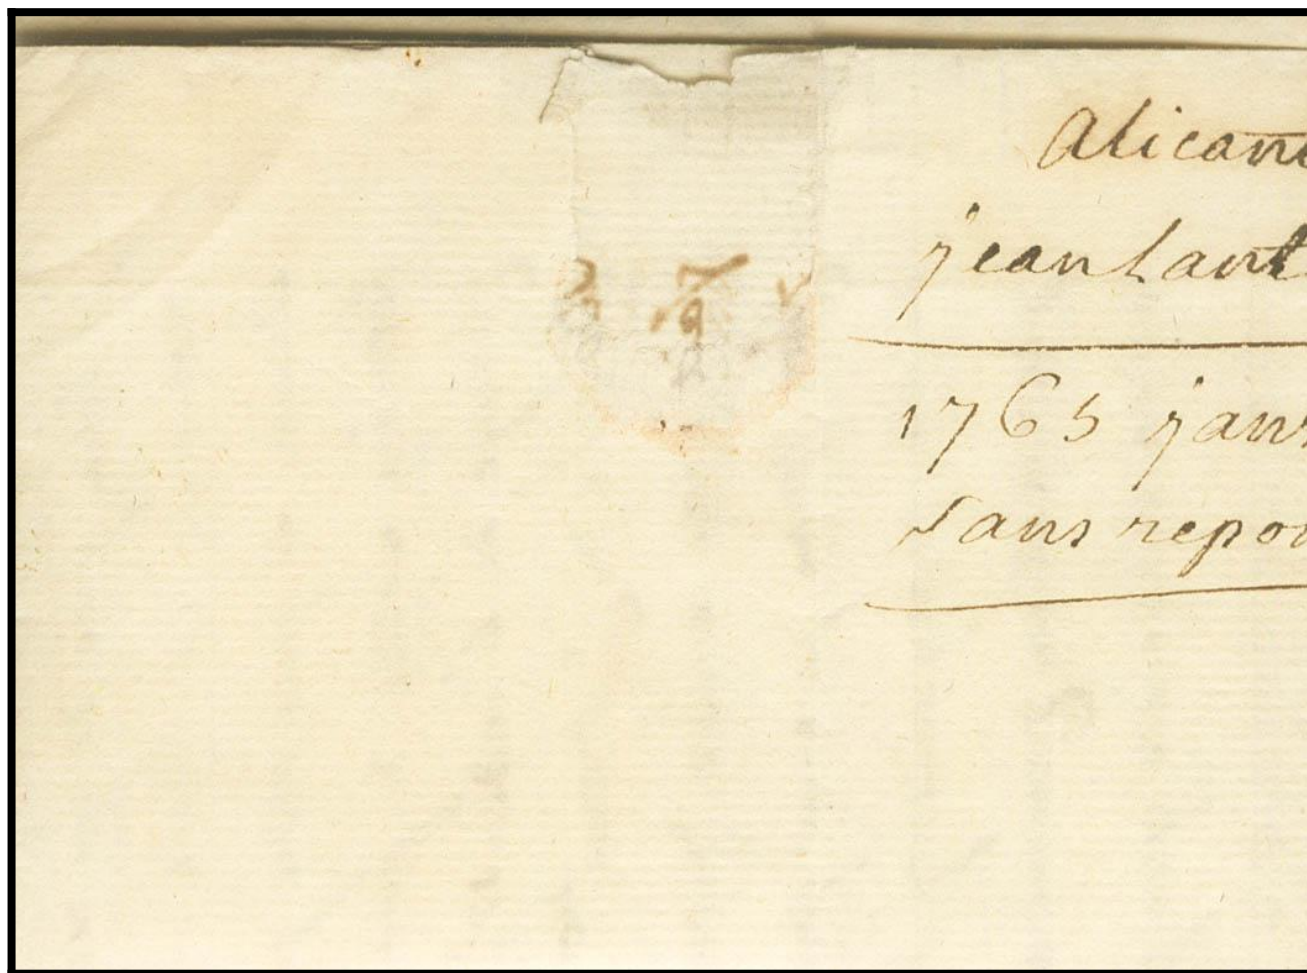 Alicant
jean Lant
1765 janv
sans repon